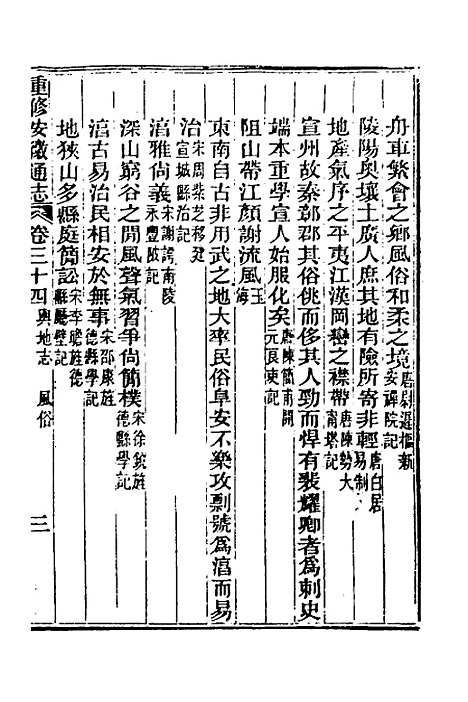 舟車繁會之鄉風俗和柔之境唐尉遲樞新安禪院記
陵陽奧壤土廣人庶其地有險所寄非輕唐白居易制
地產氣序之平夷江漢岡巒之襟帶唐陳勢大甯塔記
宣州故秦鄣郡其俗佻而侈其人勁而悍有裴耀卿者為刺史
端本重學宣人始服化矣唐陳簡甫開元良吏記
阻山帶江顏謝流風玉海
東南自古非用武之地大率民俗阜安不樂攻剽號為湻而易
治宋周紫芝移建宣城縣治記
湻雅尚義宋謝諤南陵永豐陂記
深山窮谷之閒風聲氣習爭尚簡樸宋徐筬旌德縣學記
湻古易治民相安於無事宋邵康旌德縣學記
地狹山多縣庭簡訟宋李瞻旌德縣廳壁記
重修安徽通志 卷三十四 輿地志 風俗 三